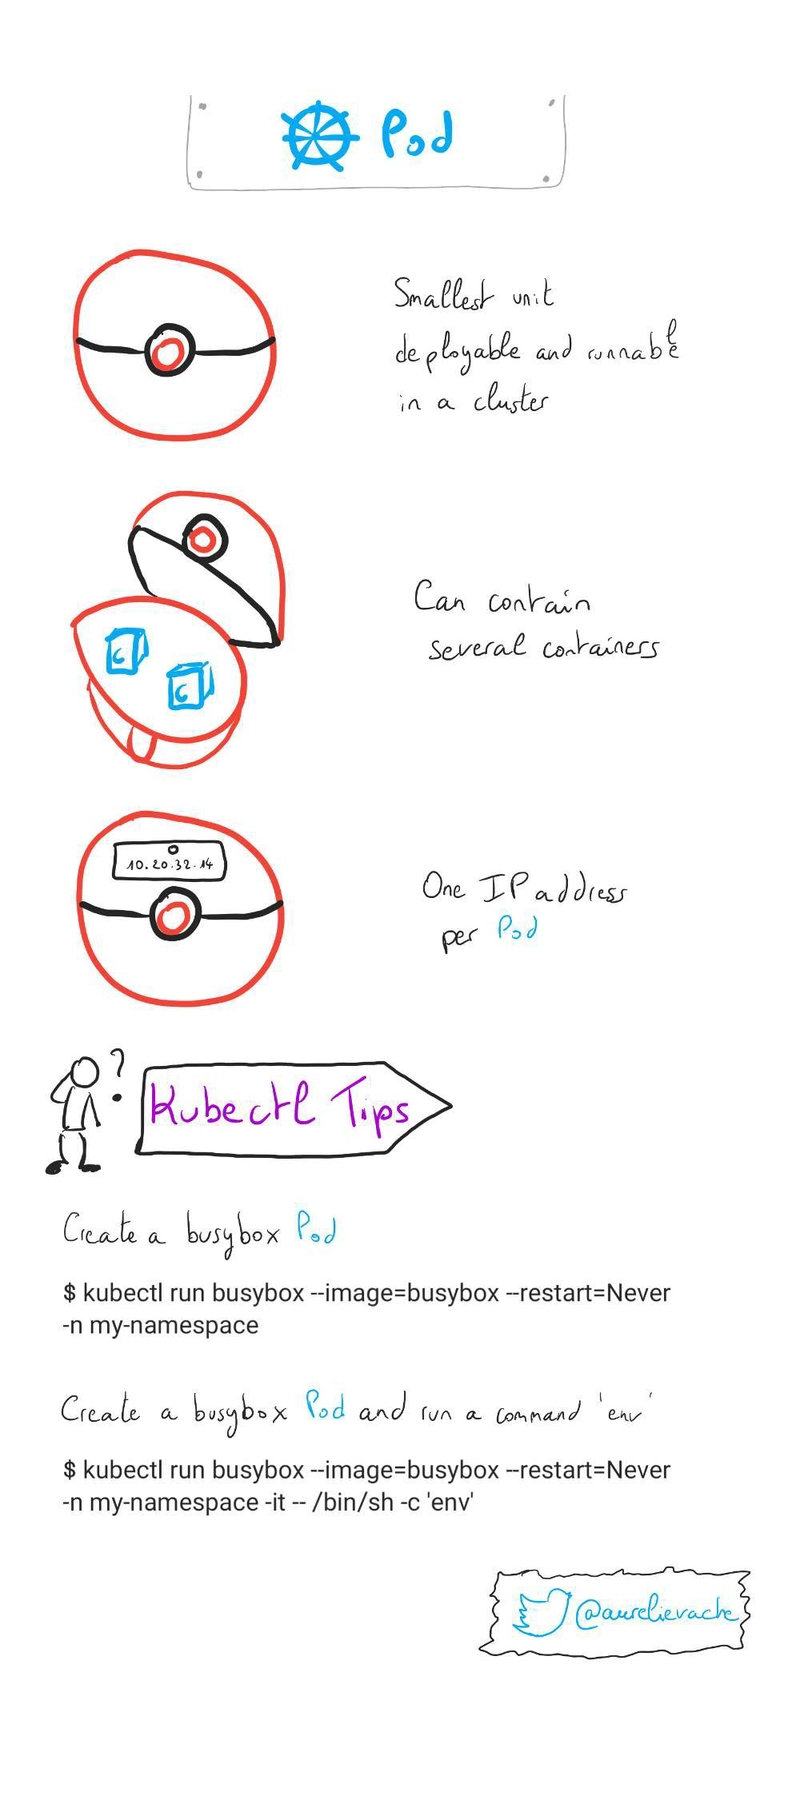 Pod
Smallest unit
deployable and runnable
in a cluster
Can contain
several containers
C
C
10.20.32.14
One IP address
per Pod
?
Kubectl Tips
Create a busybox Pod
$ kubectl run busybox --image=busybox --restart=Never
-n my-namespace
Create a busybox Pod and run a command 'env'
$ kubectl run busybox --image=busybox --restart=Never
-n my-namespace -it -- /bin/sh -c 'env'
@aurelievache